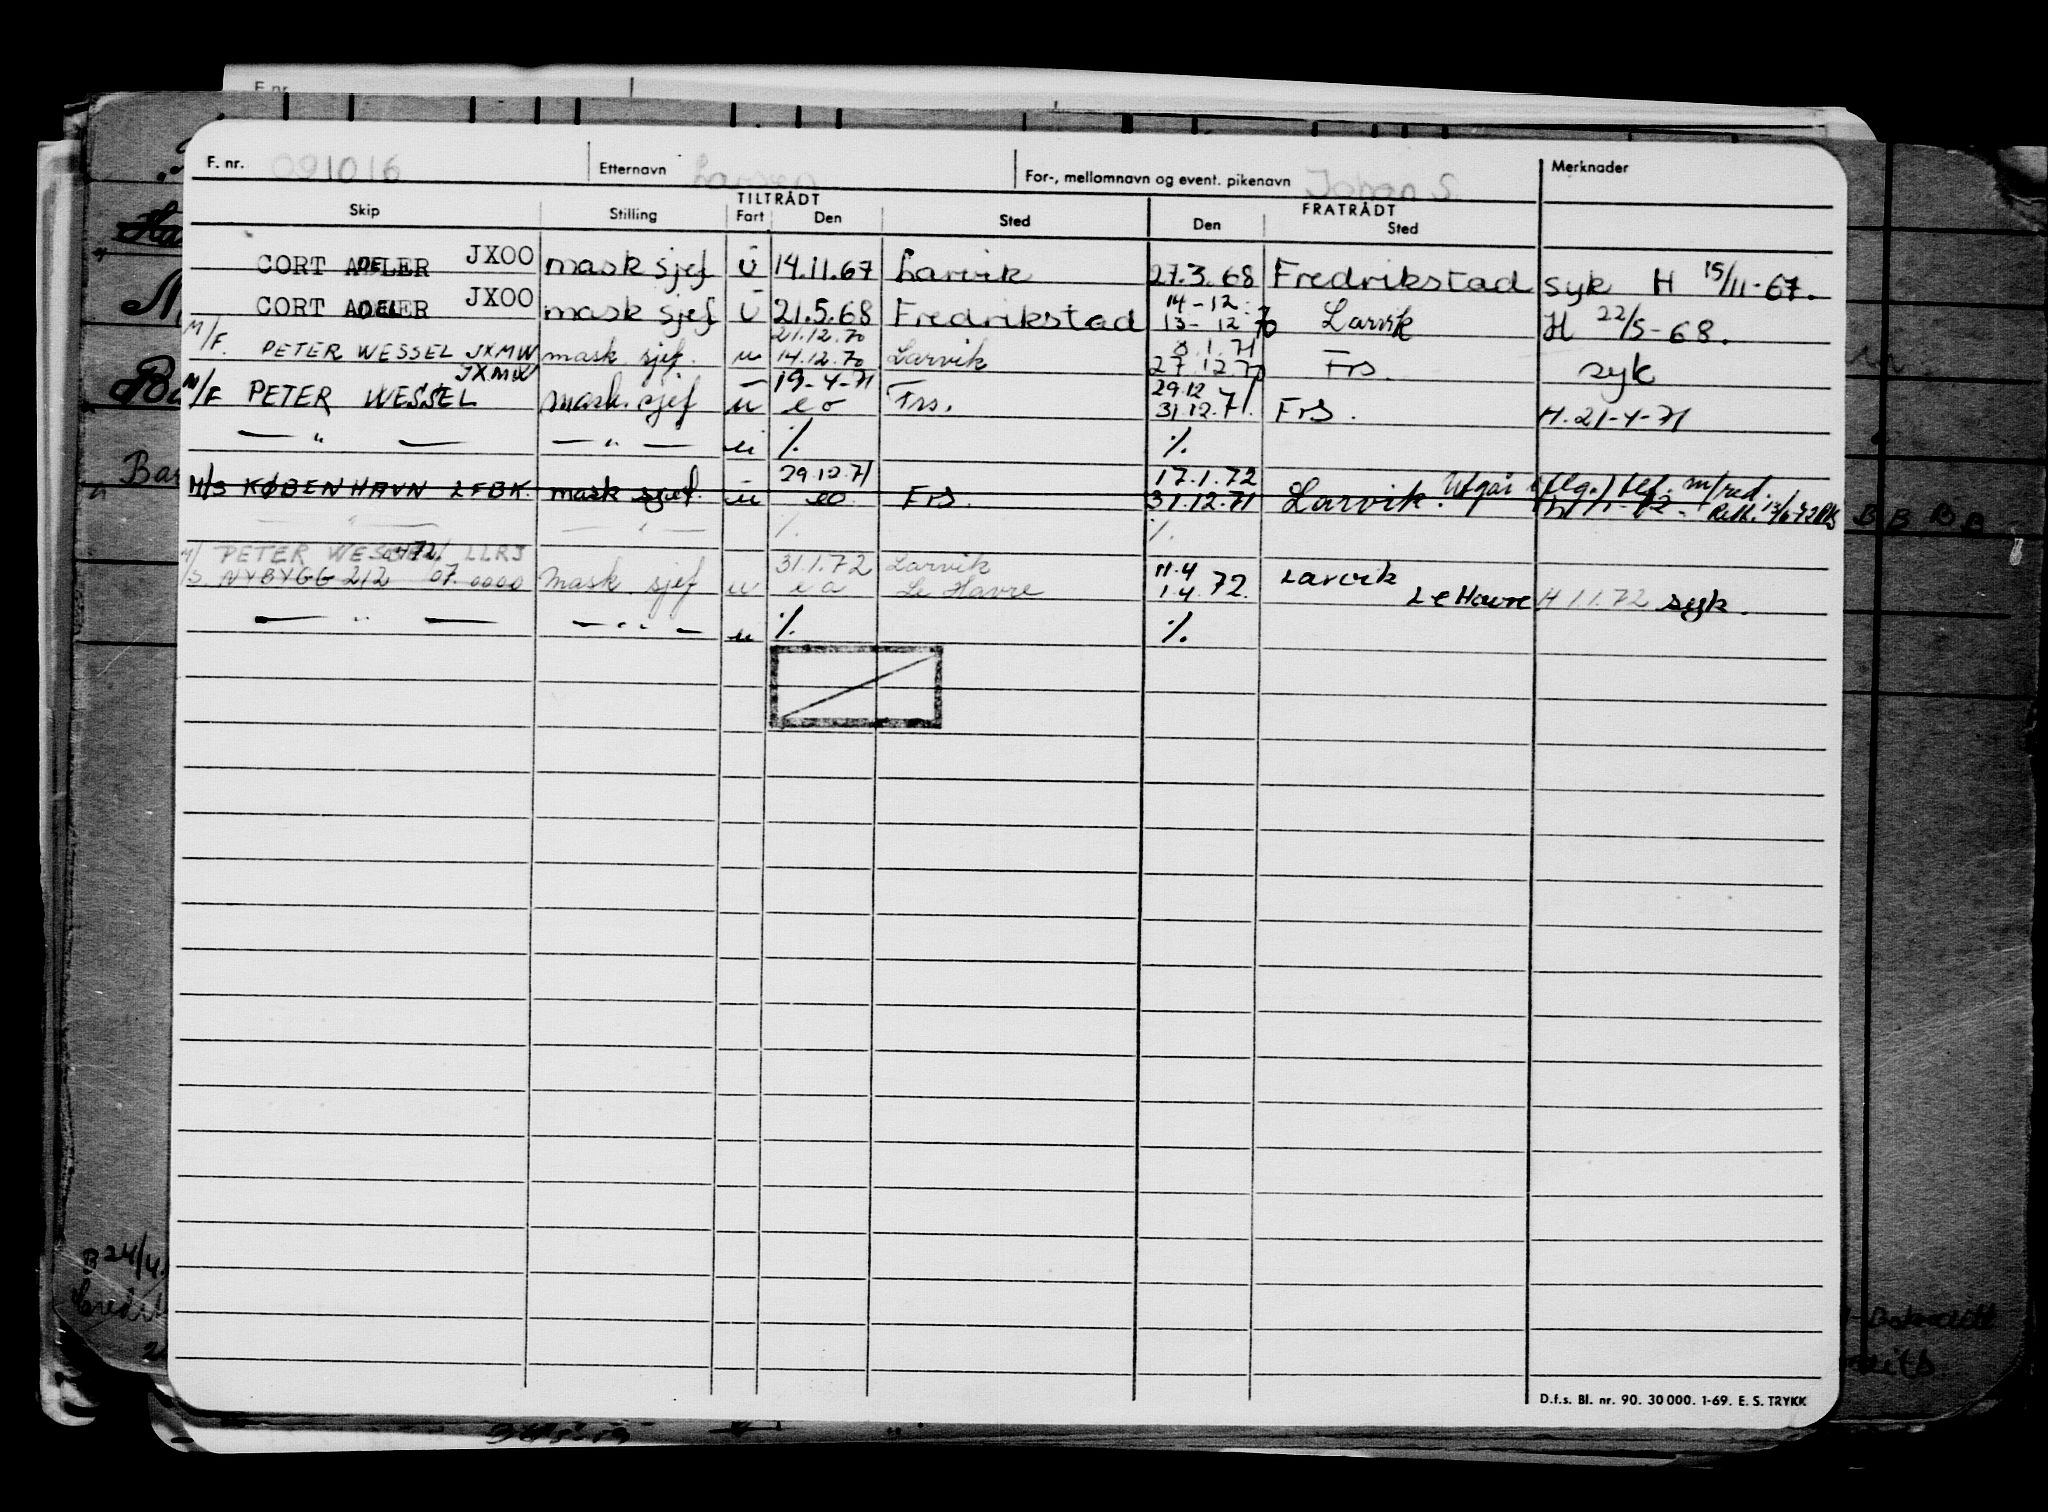 F. nr. 091016 Etternavn Larsen For-, mellomnavn og event. pikenavn Johan S. Merknader
TILTRÅDT FRATRÅDT
Skip Stilling Fart Den Sted Den Sted
CORT ADELER JXOO mask sjef u 14.11.67 Larvik 27.3.68 Fredrikstad syk H 15/11-67.
CORT ADELER JXOO mask sjef u 21.5.68 Fredrikstad 14-12 13-12 70 Larvik H 22/5-68.
M/F. PETER WESSEL JXMW mask. sjef. u 21.12.70 14.12.70 Larvik 8.1.71 27.12.70 Frs. syk
M/F PETER WESSEL JXMW mask. sjef u 19-4-71 eo Frs. 29.12 31.12.71. Frs. H. 21-4-71
— " — — " — u % %
M/S KØBENHAVN LFBK. mask sjef. u 29.12.71 eo Frs. 17.1.72 31.12.71 Larvik. Utgår iflg. tlf. m/red.
— " — — " — % %
M/S PETER WESSEL LLRJ
NYBYGG 212 07.0000 mask. sjef u 31.1.72 eo Larvik Le Havre 11.4 1.4.72. Larvik Le Havre H 1.1.72 syk.
— " — — " — u % %
D.f.s. Bl. nr. 90. 30 000. 1-69. E. S. TRYKK
F. nr.
B B B B
B 24/4.